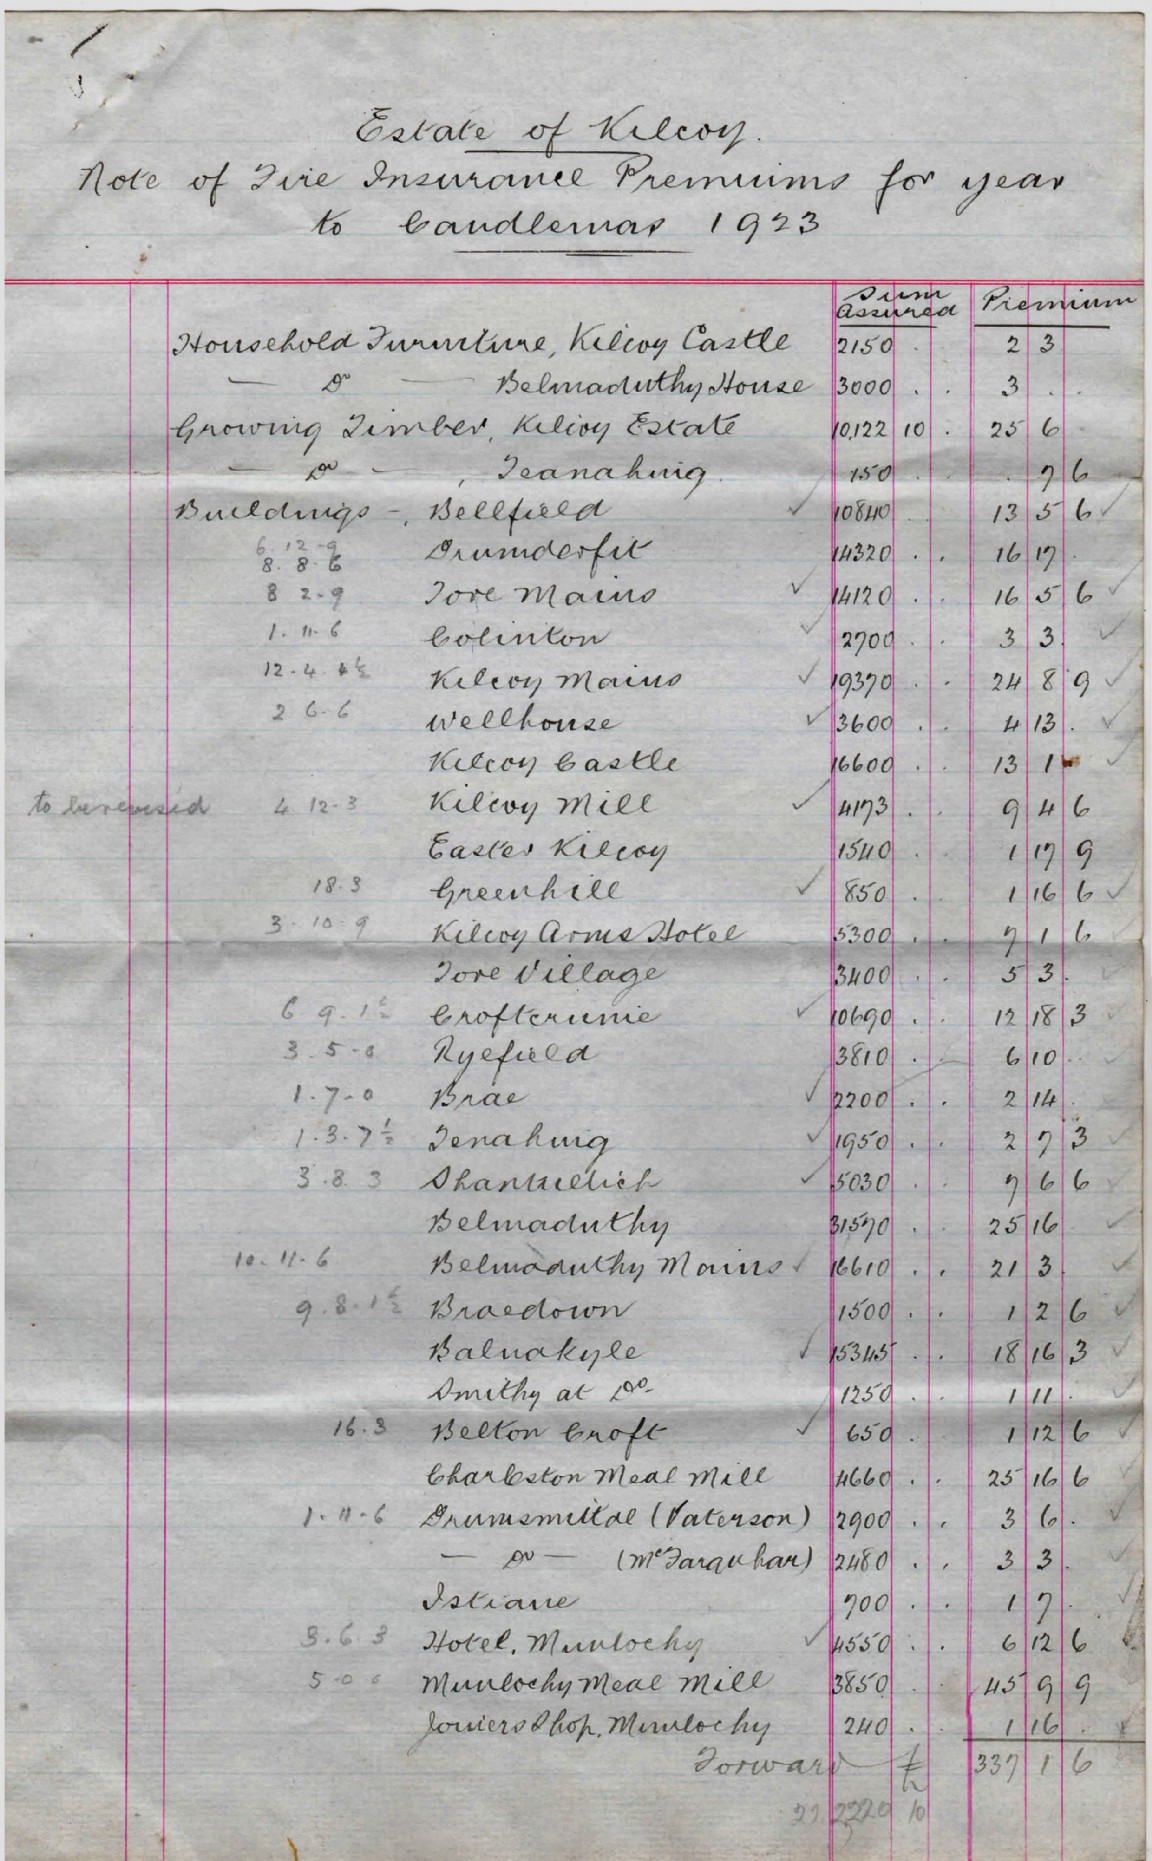 Estate of Kilcoy.
Note of Fire Insurance Premiums for year
to Candlemas 1923
Sum Assured Premium
Household Furniture, Kilcoy Castle 2150 . 2 3
— Do — Belmaduthy House 3000 . . 3 . .
Growing Timber, Kilcoy Estate 10,122 10 . 25 6
— Do — , Teanahuig. 150 . 7 6
Buildings -, Bellfield ✓ 10840 13 5 6 ✓
6. 12 - 9
8. 8. 6 Drumderfit 14320 . . 16 17 .
8 2 - 9 Tore Mains ✓ 14120 . . 16 5 6 ✓
1. 11. 6 Colinton ✓ 2700 . . 3 3 . ✓
12. 4. 4½ Kilcoy Mains ✓ 19370 . . 24 8 9 ✓
2 6. 6 Wellhouse ✓ 3600 . . 4 13 . ✓
Kilcoy Castle 16600 . . 13 1 ✓
to be revised 4 12. 3 Kilcoy Mill ✓ 4173 . . 9 4 6
Easter Kilcoy 1540 . . 1 17 9
18. 3 Greenhill ✓ 850 . . 1 16 6 ✓
3. 10. 9 Kilcoy Arms Hotel 5300 . . 7 1 6
Tore Village 3400 . . 5 3 .
6 9. 1½ Croftcrunie ✓ 10690 . . 12 18 3 ✓
3. 5 - 0 Ryefield 3810 . . 6 10 . .
1. 7 - 0 Brae ✓ 2200 . . 2 14
1. 3. 7½ Tenahuig ✓ 1950 . . 2 7 3 ✓
3. 8. 3 Shantullich ✓ 5030 . . 7 6 6 ✓
Belmaduthy 31570 . . 25 16 ✓
10. 11. 6 Belmaduthy Mains ✓ 16610 . . 21 3 . ✓
9. 8. 1½ Braedown 1500 . . 1 2 6 ✓
Balnakyle ✓ 15345 . . 18 16 3 ✓
Smithy at Do. 1250 . . 1 11 . ✓
16. 3 Belton Croft ✓ 650 . 1 12 6 ✓
Charleston Meal Mill 4660 . . 25 16 6
1. 11 - 6 Drumsmittal (Paterson) 2900 . . 3 6 . ✓
— Do — (McFarquhar) 2480 . . 3 3 . ✓
700 . . 1 7 . ✓
3. 6. 3 Hotel, Munlochy ✓ 4550 . . 6 12 6
5 - 0 Munlochy Meal Mill 3850 . . 45 9 9
Joiners Shop, Munlochy 240 . . 1 16 .
Forward £ 337 1 6
2220 10